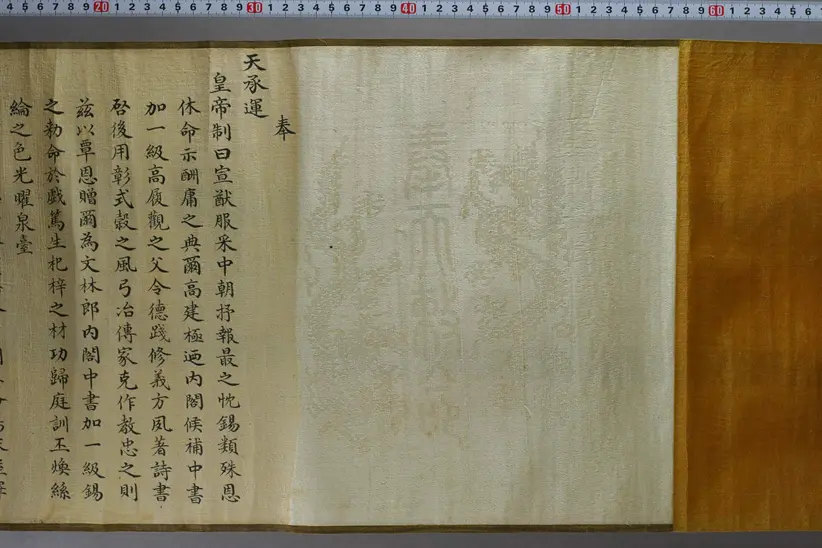 4 5 6 7 8 9 20 1 2 3 4 5 6 7 8 9 30 1 2 3 4 5 6 7 8 9 40 1 2 3 4 5 6 7 8 9 50 1 2 3 4 5 6 7 8 9 60 1 2 3 4 5 6
奉
天承運
皇帝制曰宣猷服采中朝抒報最之忱錫類殊恩
休命示酬庸之典爾高建極迺內閣候補中書
加一級高履觀之父令德踐修義方夙著詩書
啓後用彰式穀之風弓冶傳家克作教忠之則
茲以覃恩贈爾為文林郎內閣中書加一級錫
之勅命於戲篤生杞梓之材功歸庭訓丕煥絲
綸之色光曜泉臺